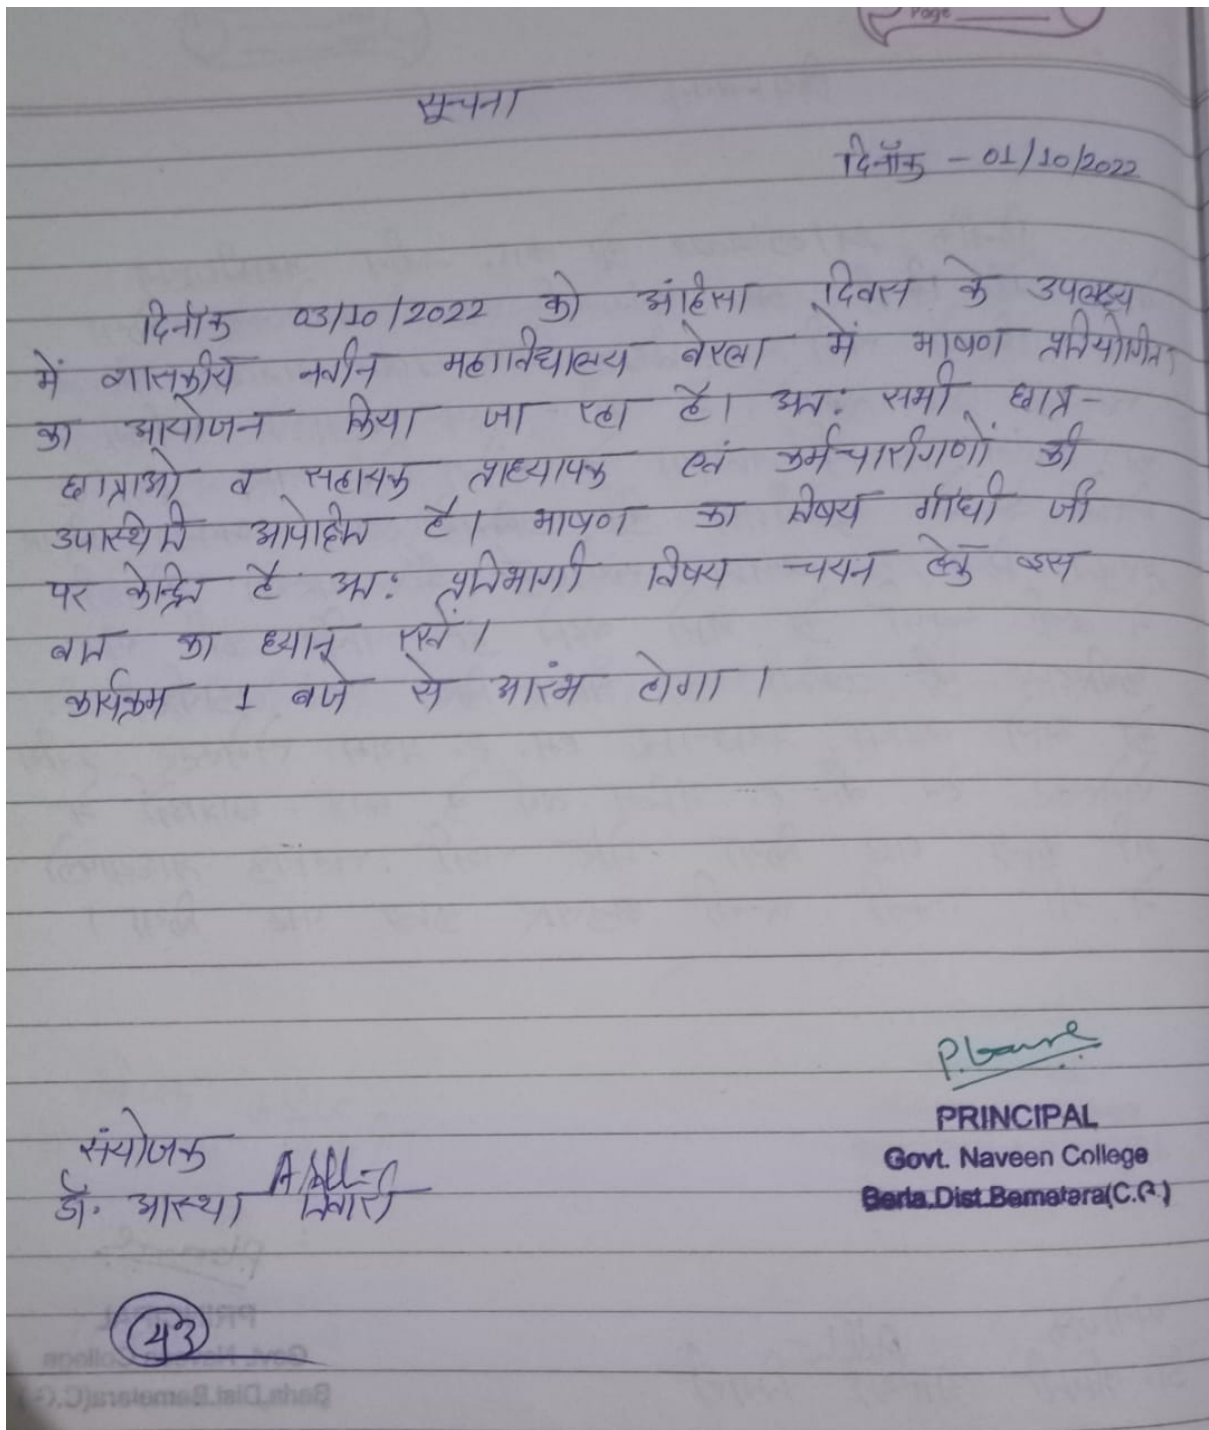 Page
सूचना
दिनाँक - 01/10/2022
दिनाँक 03/10/2022 को अंहिसा दिवस के उपलक्ष्य
में शासकीय नवीन महाविद्यालय बेरला में भाषण प्रतियोगिता
का आयोजन किया जा रहा है। अतः सभी छात्र-
छात्राओ व सहायक प्राध्यापक एवं कर्मचारीगणों की
उपस्थिति आपेक्षित है। भाषण का विषय गाँधी जी
पर केन्द्रित है अतः प्रतिभागी विषय चयन हेतु इस
बात का ध्यान रखें।
कार्यक्रम 1 बजे से आरंभ होगा।
PRINCIPAL
Govt. Naveen College
Berla.Dist.Bemetara(C.G.)
संयोजक
डॉ. आस्था तिवारी
43